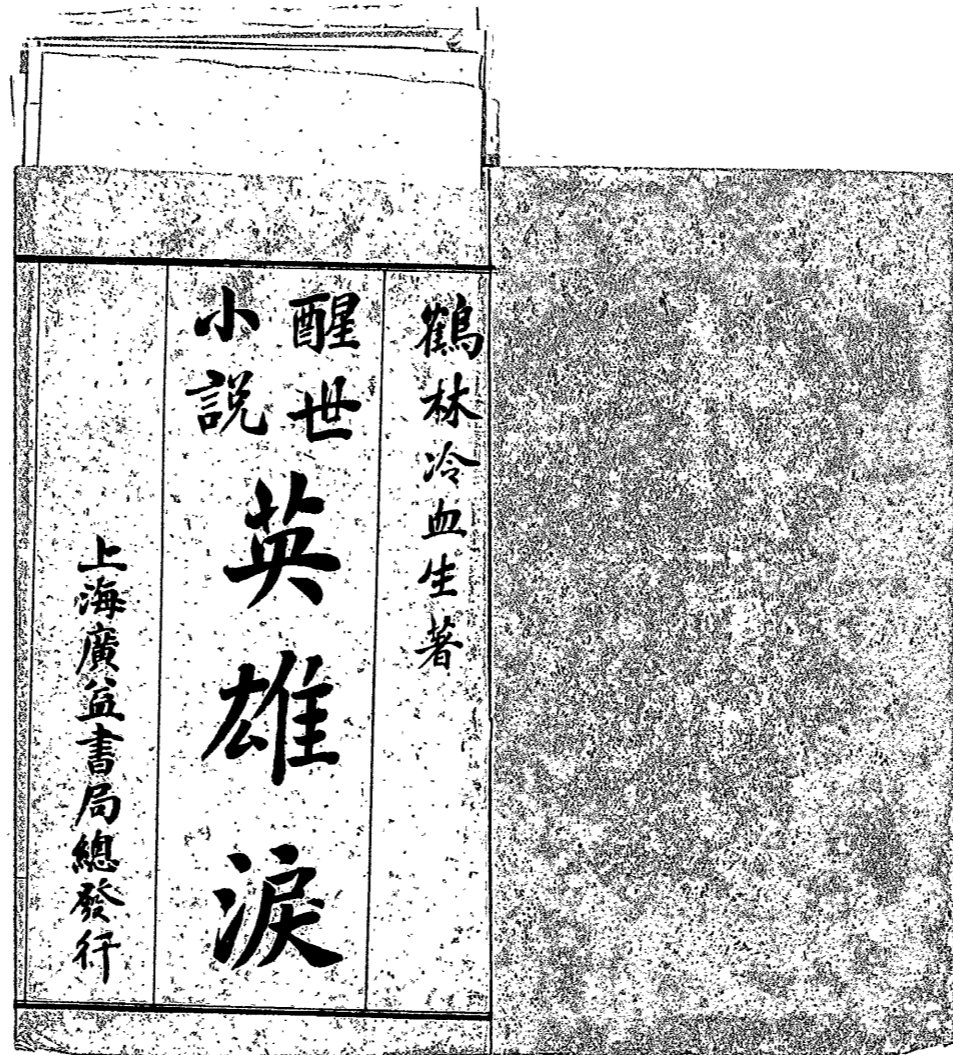 鶴林冷血生著
醒世
小説
英雄淚
上海廣益書局總發行